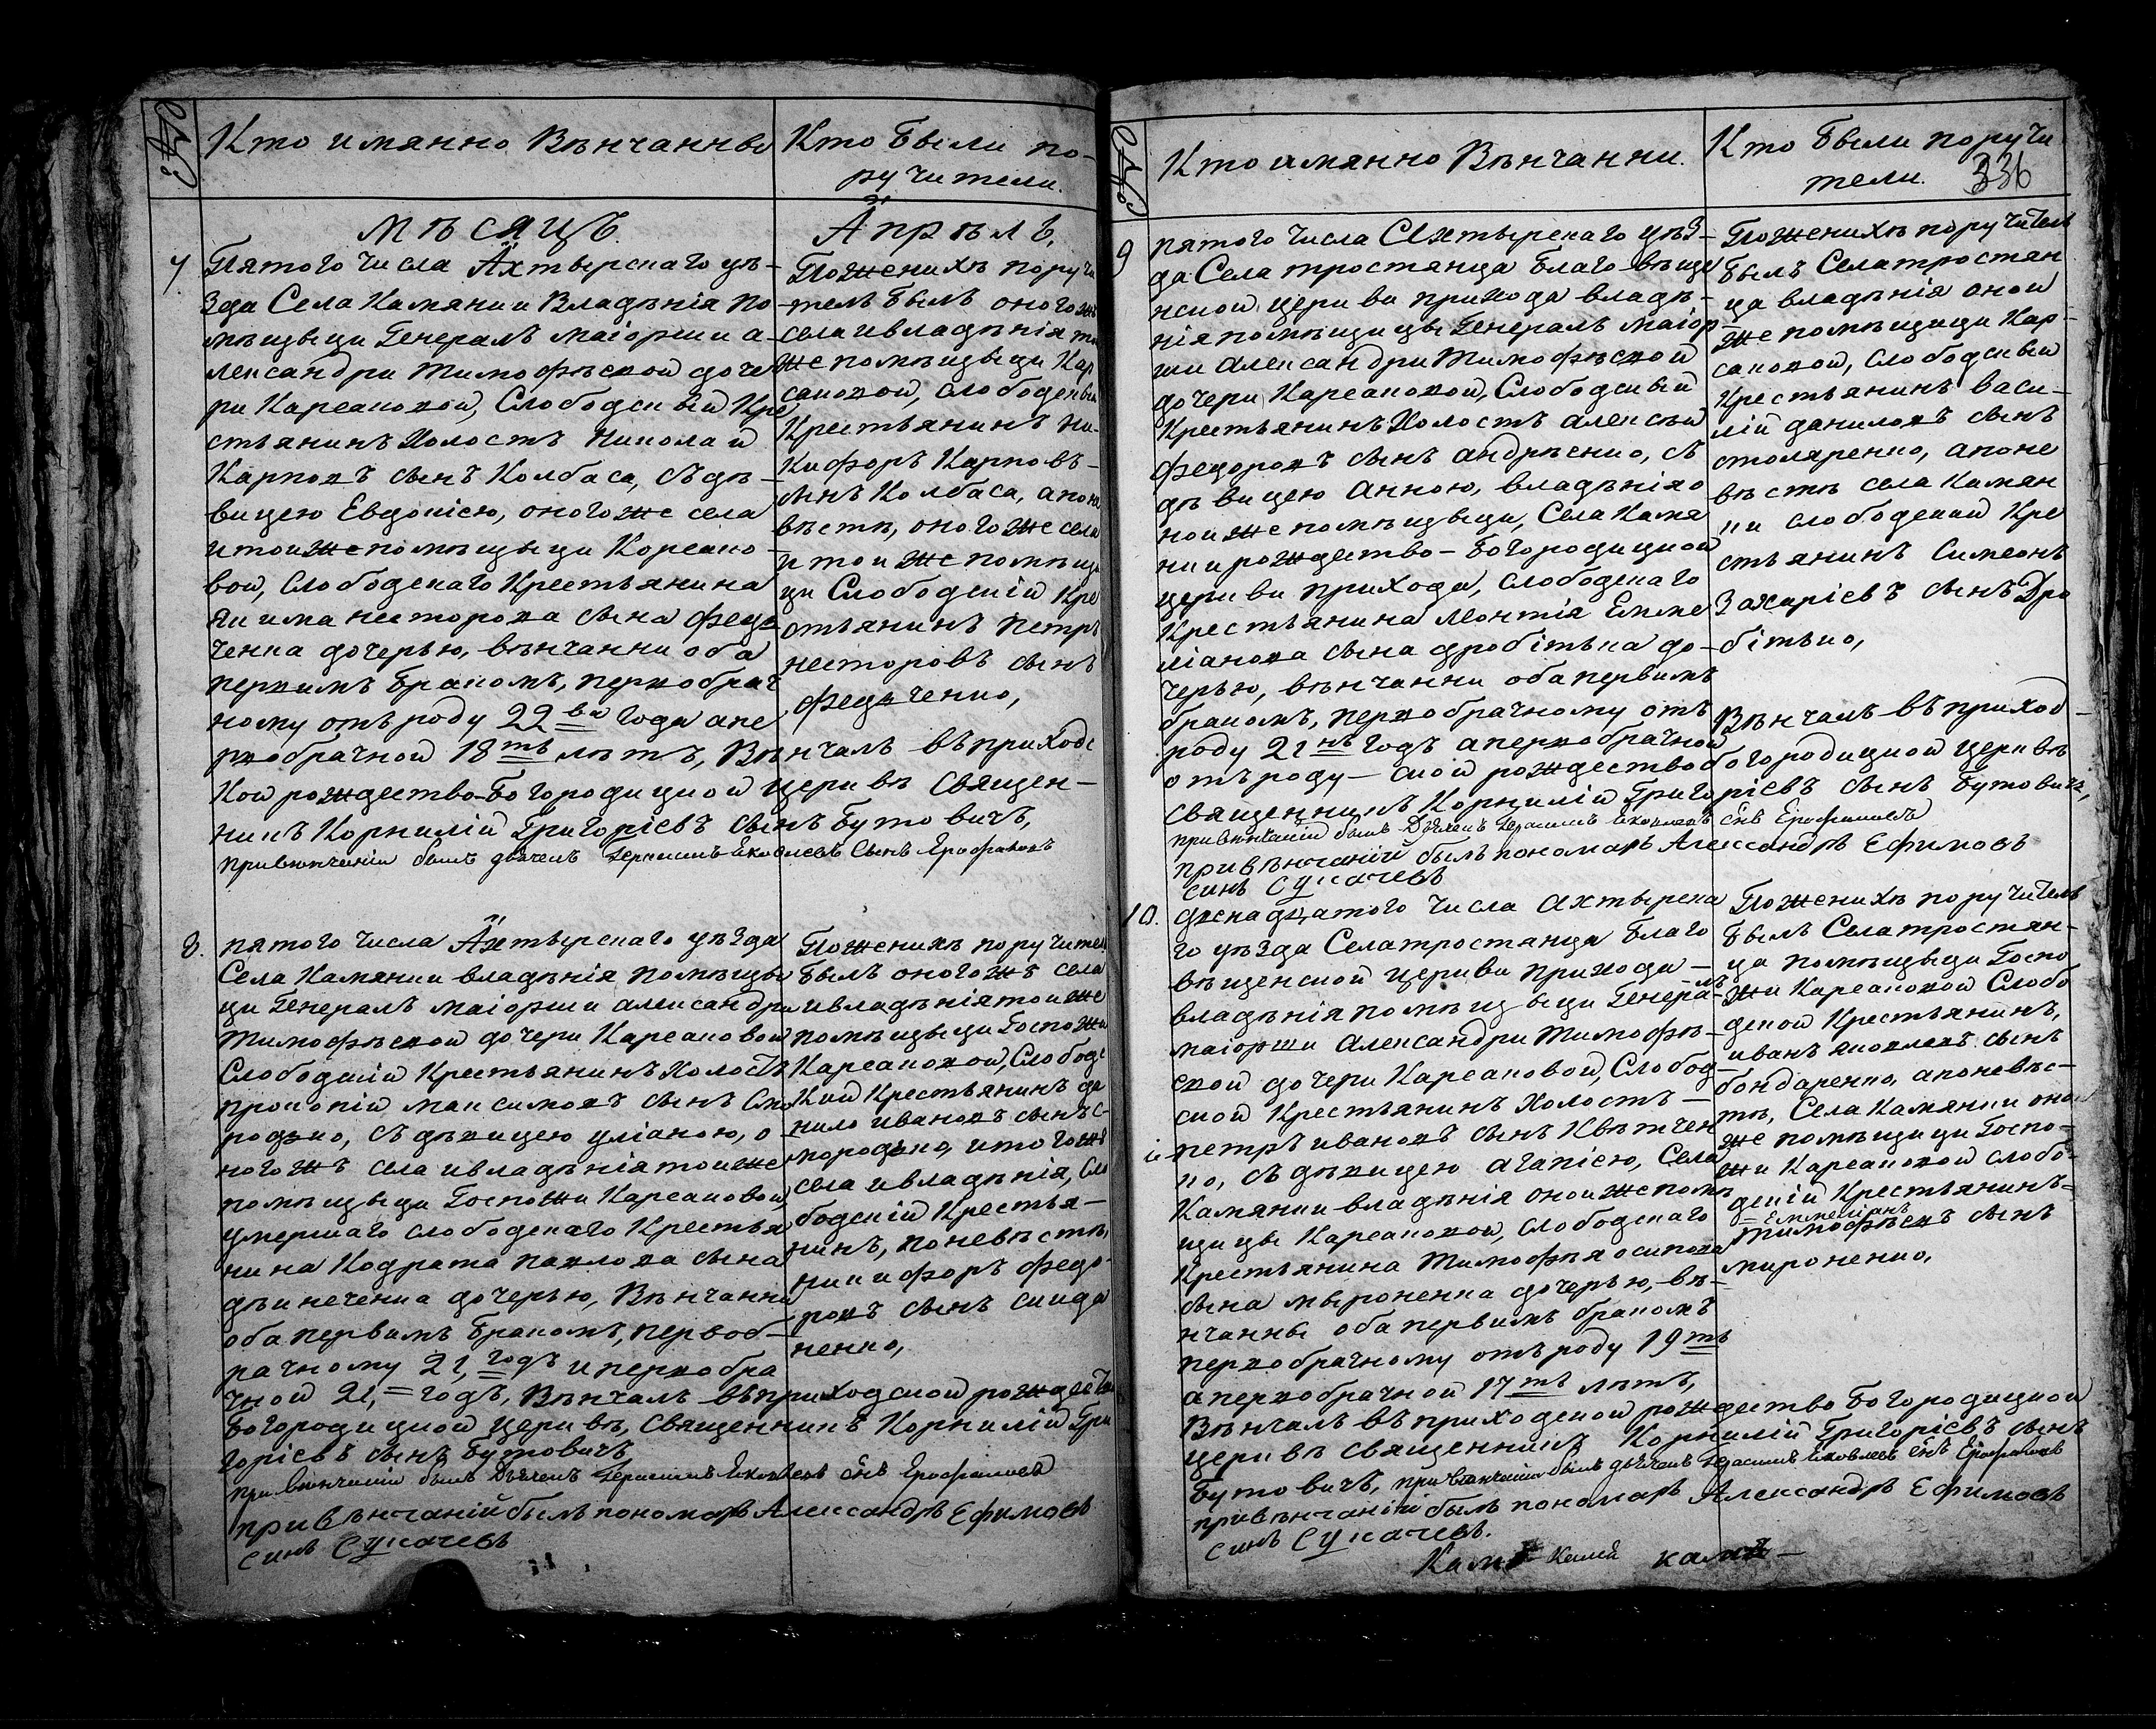 Кто имянно Вѣнчанны
Кто были по-
ручители.
мѣсяцъ
Апрѣль,
7.
Пятого числа Ахтырскаго уѣ-
зда Села Камянки Владѣнія по
мѣщыци Генералъ маіорши а-
лександри тимофѣевой доче
ри Карсановой, Слободскый Кре
стьянинъ Холостъ Николай
Карповъ сынъ Колбаса, съ дѣ-
вицею Евдокіею, оного же села
и тои же помѣщыци Корсано-
вой, Слободскаго Крестьянина
якима несторова сына Федо
ченка дочерью, вѣнчанни оба
первымъ бракомъ, первобрач
ному отъ роду 22ва года а пе
рвобрачной 18ть лѣтъ, Вѣнчалъ въ приходс
кой рождество-Богородицкой церквѣ Священ-
никъ Корнилій Григоріевъ сынъ Бутовичъ,
при вѣнчаніи былъ дьячекъ Герасимъ Яковлевъ Сынъ Ерофаловъ
По женихѣ поручи
тель былъ оного же
села и владѣнія то
же помѣщыци Кар
сановой, слободскый
Крестьянинъ Ни-
кифоръ Карповъ-
сынъ Колбаса, а по не
вѣстѣ, оного же села
и тои же помѣщи
ци Слободскій Кре
стьянинъ Петръ
несторовъ сынъ
Федченко,
8.
пятого числа Ахтырскаго уѣзда
Села Камянки владѣнія помѣщы
ци Генералъ маіорши александри
тимофѣевой дочери Карсановой
Слободскій Крестьянинъ Холостъ
прокопій максимовъ сынъ Смо
родько, съ дѣвицею уліаною, о
ногожъ села и владѣнія тои же
помѣщыци Госпожи Карсановой,
умершаго слободскаго Крестья
нина Кодрата павлова сына
дѣинеченка дочерью, Вѣнчанни
оба первымъ бракомъ, первоб-
рачному 21, годъ и первобра
чной 21, годъ, Вѣнчалъ въ приходской рождество
Богородицкой церквѣ, Священникъ Корнилій Гри
горіевъ сынъ Бутовичъ
при вѣнчаніи былъ Дьячекъ Герасимъ Яковлевъ снъ Ерофаловъ
при вѣнчаній былъ пономарь Александръ Ефимовъ
синъ Сукачевъ
По женихѣ поручитель
былъ оногожъ села
и владѣнія тои же
помѣщыци Госпожи
Карсановой, Слободс
кий Крестьянинъ да
нило ивановъ сынъ С-
мородько, и тогожъ
села и владѣнія, Сло
бодскій Крестья-
нинъ, по невѣстѣ,
никифоръ федо-
ровъ сынъ скида
ненко,
Кто имянно Вѣнчанни.
Кто были поручи
тели. 336
9
пятого числа Ахтырскаго уѣз-
да Села тростянца Благо-вѣще
нской церкви прихода владѣ-
нія помѣщицы Генералъ маіор-
ши александри тимофѣевой
дочери Карсановой, Слободскый
Крестьянинъ Холостъ алексѣй
федоровъ сынъ андрѣенко, съ
дѣвицею Анною, владѣнія о
ной же помѣщыци, Села Камя
нки рождество-Богородицкой
церкви прихода, слободскаго
Крестьянина Леонтія Емме
ліанова сына дробітька до-
черью, вѣнчанни оба первымъ
бракомъ, первобрачному отъ
роду 21нъ годъ а первобрачной
отъ роду — Вѣнчалъ въ приход-
ской рождество богородицкой церквѣ
священникъ Корнилій Григоріевъ сынъ Бутовичъ,
при вѣнчаніи былъ Дьячекъ Герасимъ Яковлевъ снъ Ерофаловъ
при вѣнчаній былъ пономарь Александръ Ефимовъ
синъ Сукачевъ
По женихѣ поручитель
былъ Села тростян
ца владѣнія оной
же помѣщици Кар-
сановой, слободскый
Крестьянинъ Васи-
лій даниловъ сынъ
столяренко, а по не
вѣстѣ села Камян
ки слободскій Кре
стьянинъ Симеонъ
Захаріевъ сынъ Дро
бітько,
10.
двенадцатого числа ахтырска
го уѣзда Села тростянца Благо
вѣщенской церкви прихода —
владѣнія помѣщыци Генералъ-
маіорши Александри тимофѣ-
евой дочери Карсановой, Слобод-
ской Крестьянинъ Холостъ —
петръ ивановъ сынъ Квѣтчен
ко, съ дѣвицею агапіею, Села
Камянки владѣнія оной же помѣ
щицы Карсановой, слободскаго
Крестьянина тимофѣя осипова
сына мыроненка дочерью, вѣ-
нчанны оба первымъ бракомъ
первобрачному отъ роду 19ть
а первобрачной 17ть лѣтъ,
Вѣнчалъ въ приходской рождество Богородицкой
церквѣ священникъ Корнилій Григоріевъ сынъ
Бутовичъ, при вѣнчаніи былъ дьячекъ Герасимъ Яковлевъ снъ Ерофаловъ
при вѣнчаніи былъ пономарь Александръ Ефимовъ
синъ Сукачевъ.
По женихѣ поручитель
былъ Села тростян-
ца помѣщыци Госпо
жи Карсановой Слобо
дской Крестьянинъ,
иванъ яковлевъ сынъ
бондаренко, а по невѣс-
тѣ, Села Камянки оной
же помѣщици Госпо-
жи Карсановой слобо-
дскій Крестьянинъ-
Еммеліанъ
тимофѣевъ сынъ
мироненко,